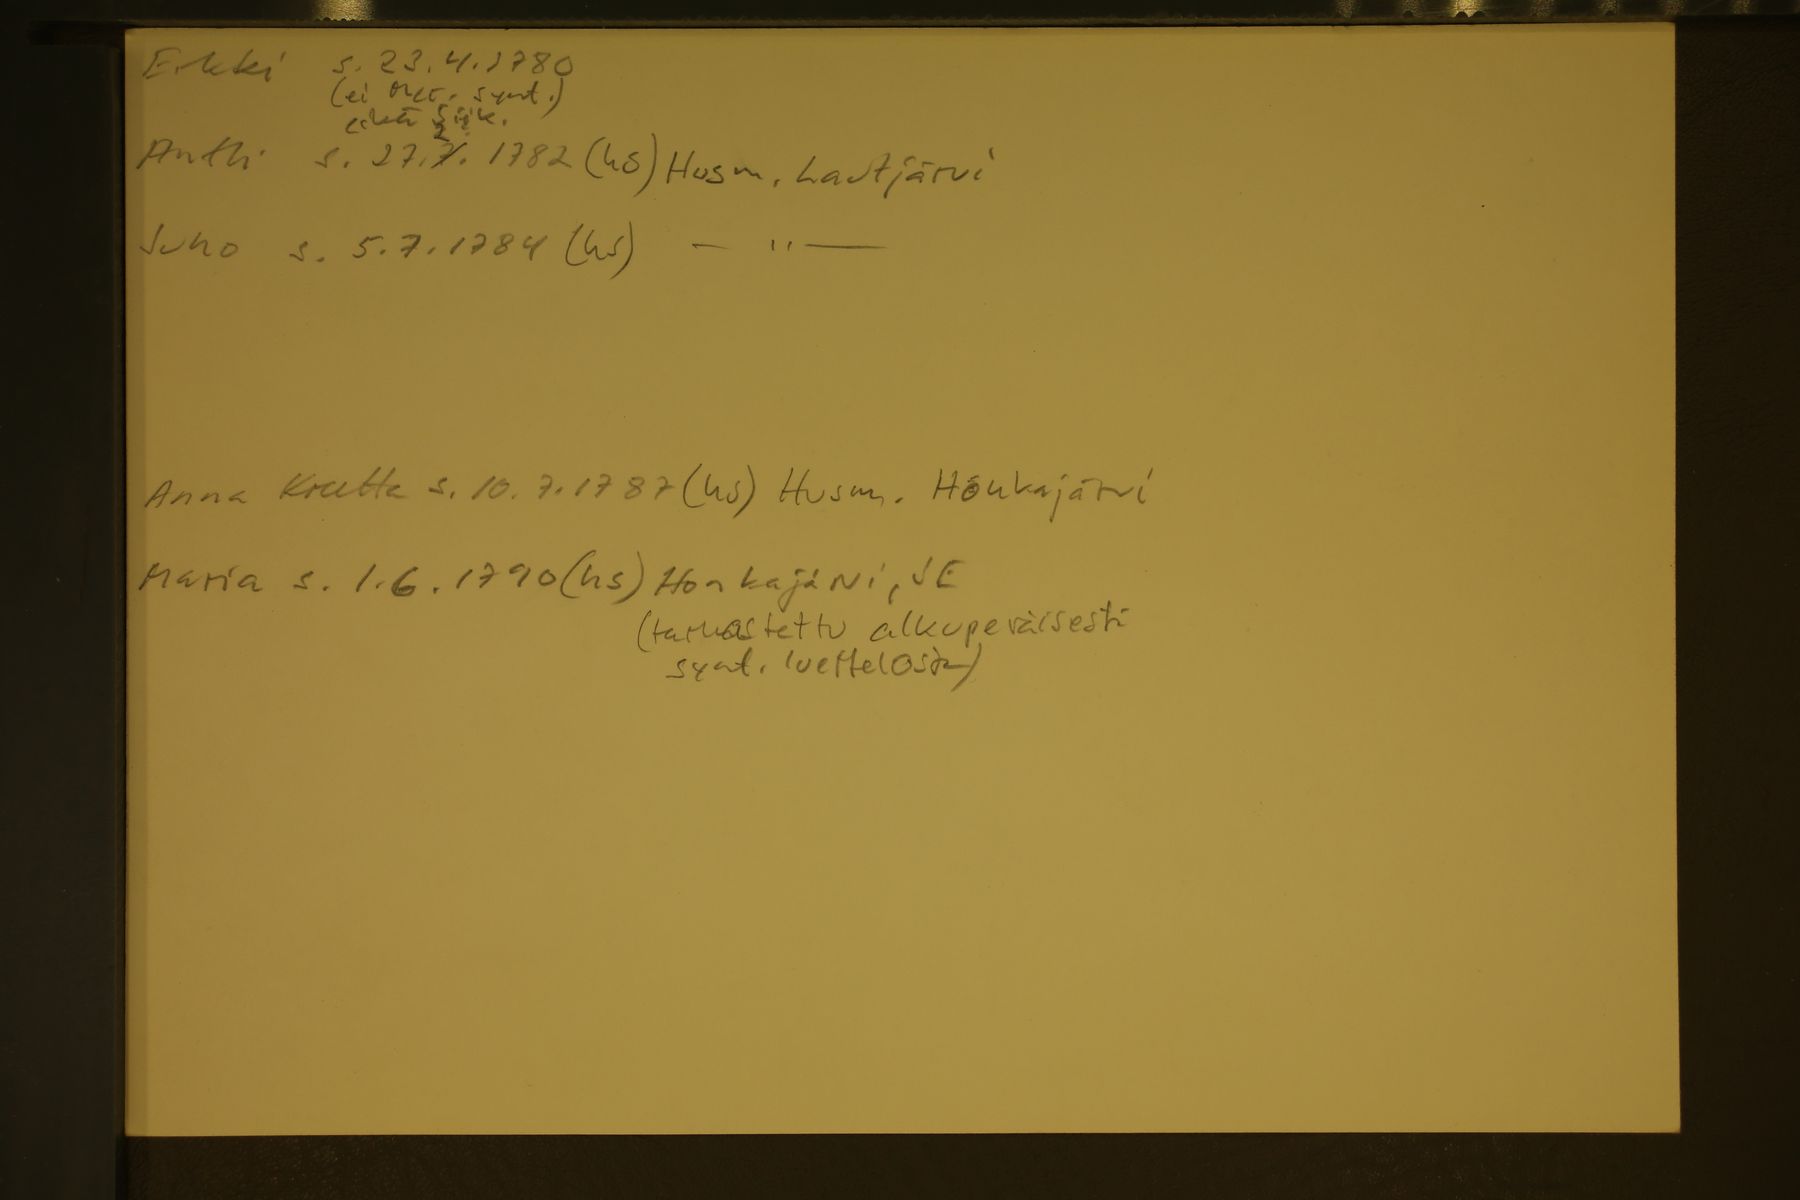 Erkki s. 23.4.1780
(ei synt.)
eikä Siik.
Antti s. 27.2. 1782 (hs) Husm. Lautjärvi
Juho s. 5.7.1784 (hs) — " —
Anna Kreetta s. 10.7.1787 (hs) Husm. Honkajärvi
Maria s. 1.6.1790 (hs) Honkajärvi, JE
(tarkastettu alkuperäisestä
synt. luettelosta)